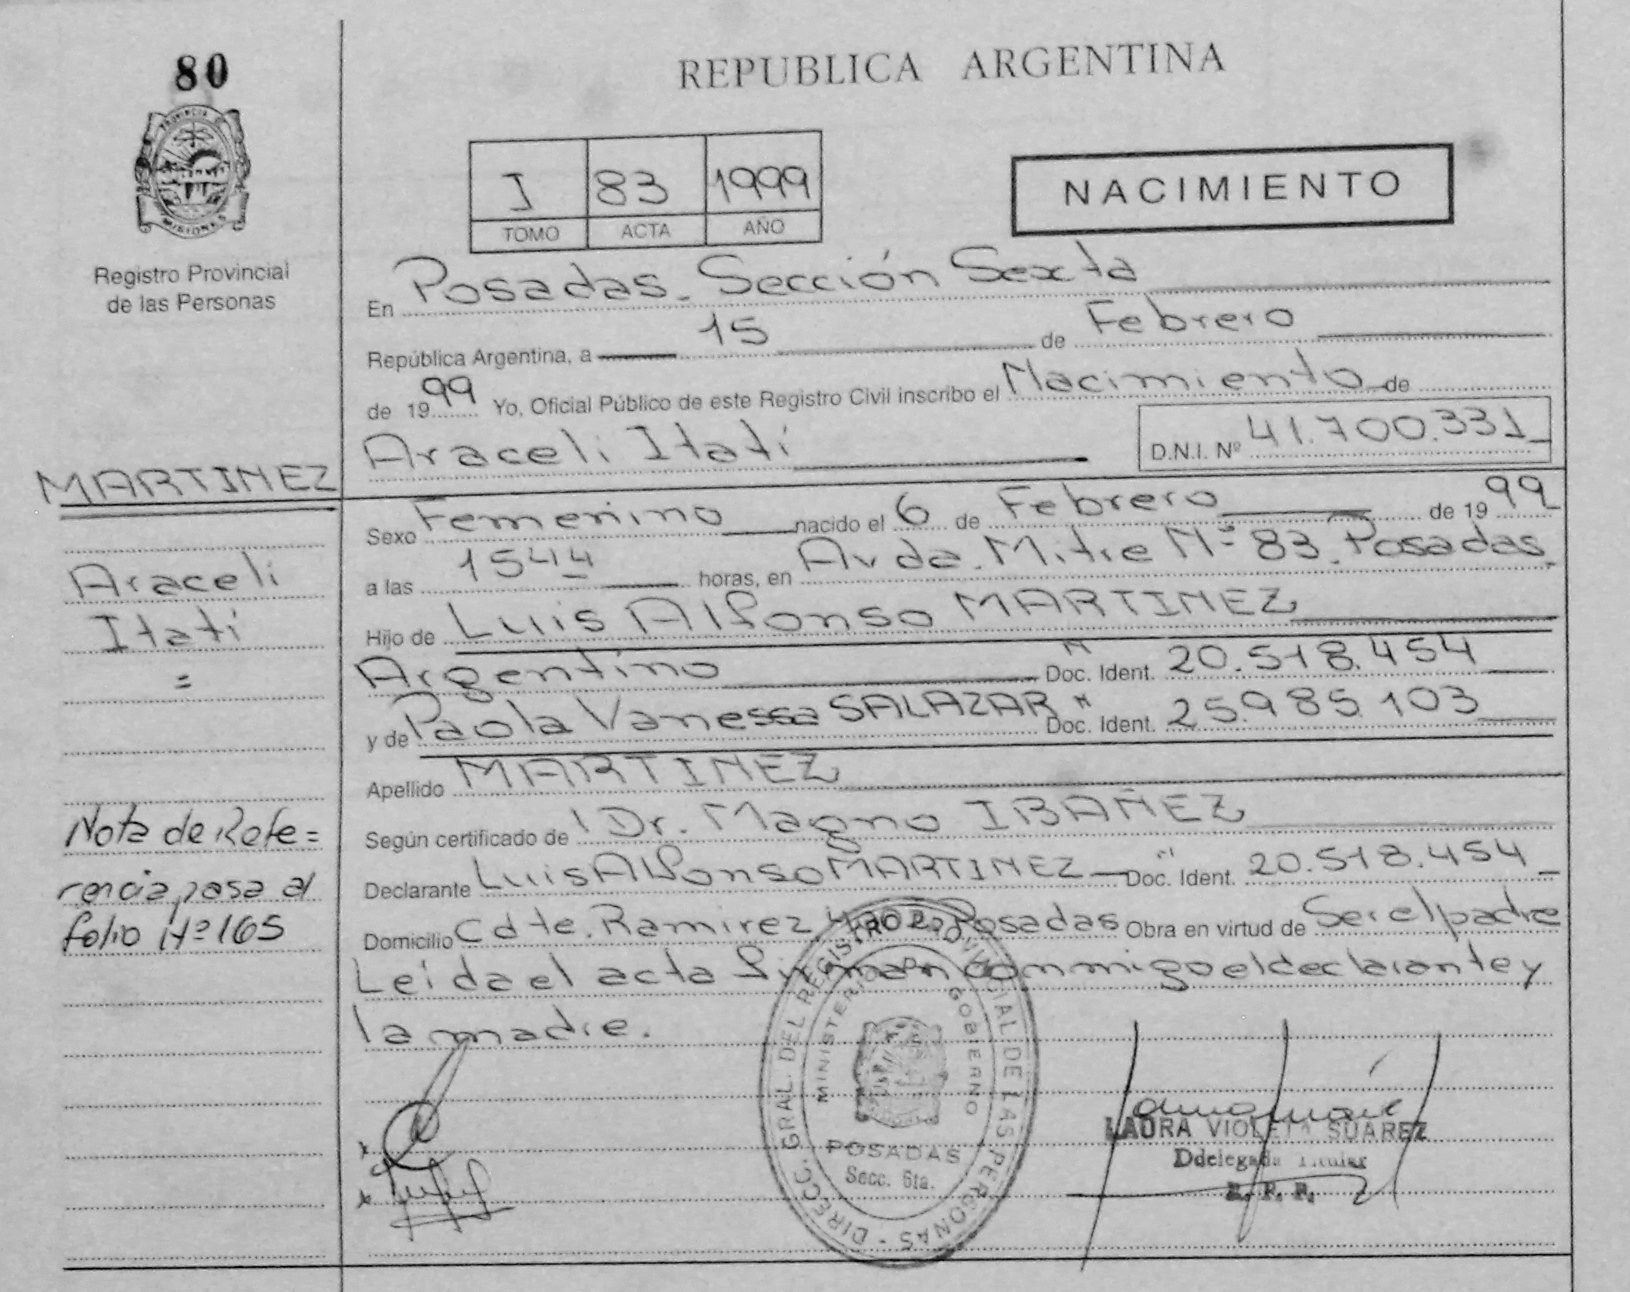 80
REPUBLICA ARGENTINA
PROVINCIA DE
MISIONES
Registro Provincial
de las Personas
I 83 1999
TOMO ACTA AÑO
NACIMIENTO
En Posadas. Sección Sexta
República Argentina, a 15 de Febrero
de 1999 Yo, Oficial Público de este Registro Civil inscribo el Nacimiento de
Araceli Itatí D.N.I. Nº 41.700.331
MARTINEZ
Araceli
Itatí
=
Sexo Femenino nacido el 6 de Febrero de 1999
a las 1544 horas, en Avda. Mitre Nº 83. Posadas.
Hijo de Luis Alfonso MARTINEZ
Argentino Doc. Ident. 20.518.454
y de Paola Vanessa SALAZAR Doc. Ident. 25.985.103
Apellido MARTINEZ
Según certificado de Dr. Magno IBAÑEZ
Declarante Luis Alfonso MARTINEZ Doc. Ident. 20.518.454
Domicilio Cdte. Ramirez Posadas Obra en virtud de Ser el padre
Leida el acta firman conmigo el declarante y
la madre.
Nota de Refe=
rencia pasa al
folio Nº 165
DIRECC. GRAL. DEL REGISTRO PROVINCIAL DE LAS PERSONAS
MINISTERIO DE GOBIERNO
POSADAS
Secc. 6ta.
LAURA VIOLETA SUAREZ
Ddelegada Titular
R. P. P.